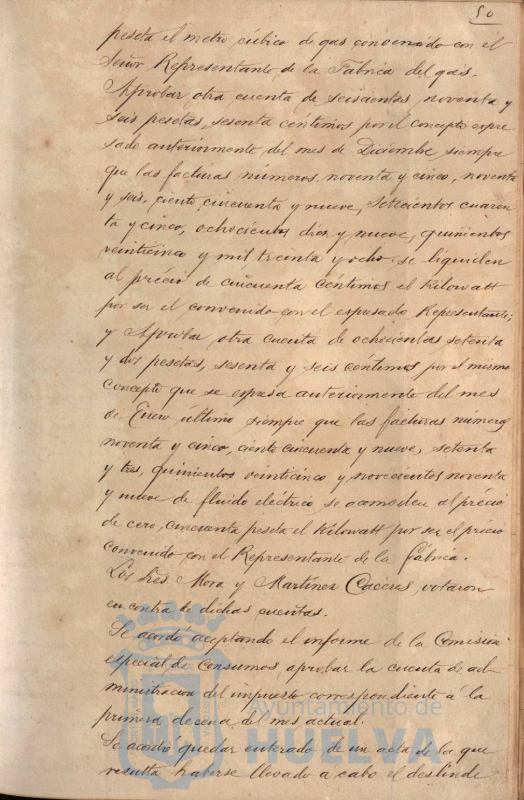 50
peseta el metro cúbico de gas convenido con el
Señor Representante de la Fábrica del gas.
Aprobar otra cuenta de seiscientas noventa y
seis pesetas, sesenta céntimos por el concepto expre
sado anteriormente del mes de Diciembre siempre
que las facturas números noventa y cinco, noventa
y seis, ciento cincuenta y nueve, setecientos cuaren
ta y cinco, ochocientos diez y nueve, quinientos
veinticinco y mil treinta y ocho, se liquiden
al précio de cincuenta céntimos el Kilowatt
por ser el convenido con el espresado Representante;
y Aprobar, otra cuenta de ochocientas setenta
y dos pesetas, sesenta y seis céntimos, por el mismo
concepto que se espresa anteriormente del mes
de Enero último siempre que las facturas números
noventa y cinco, ciento cincuenta y nueve, setenta
y tres, quinientos veinticinco y novecientos noventa
y nueve de fluido eléctrico se acomoden al précio
de cero, cincuenta peseta el Kilowatt por ser el précio
convenido con el Representante de la fábrica.
Los Sres Mora y Martínez Cáceres, votaron
en contra de dichas cuentas.
Se acordó aceptando el informe de la Comisión
especial de Consumos, aprobar la cuenta de ad-
ministración del impuesto correspondiente á la
primera decena del mes actual.
Se acordó quedar enterado de un acta de la que
resulta haberse llevado a cabo el deslinde
Ayuntamiento de
HUELVA